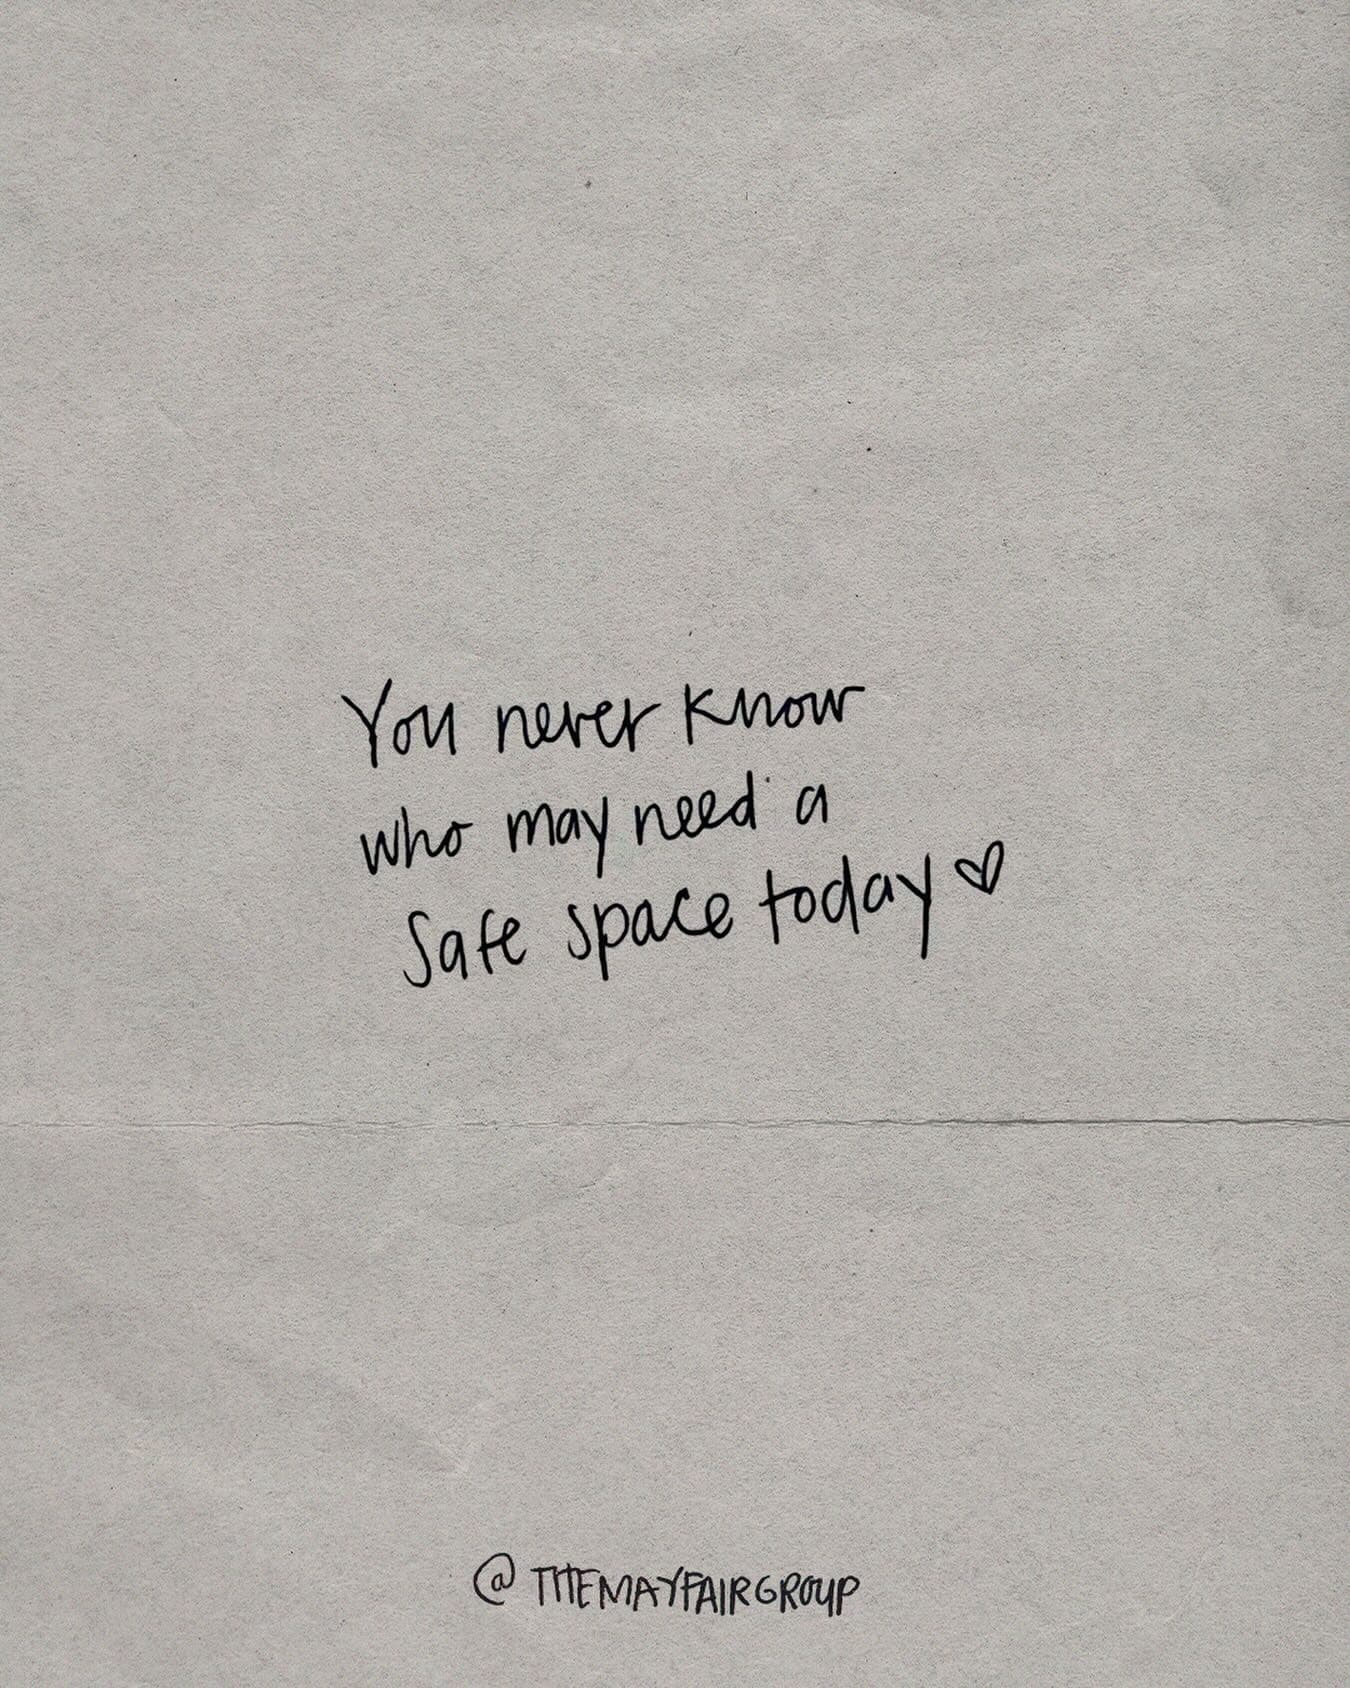 You never know
who may need a
safe space today ♡
@THEMAYFAIRGROUP